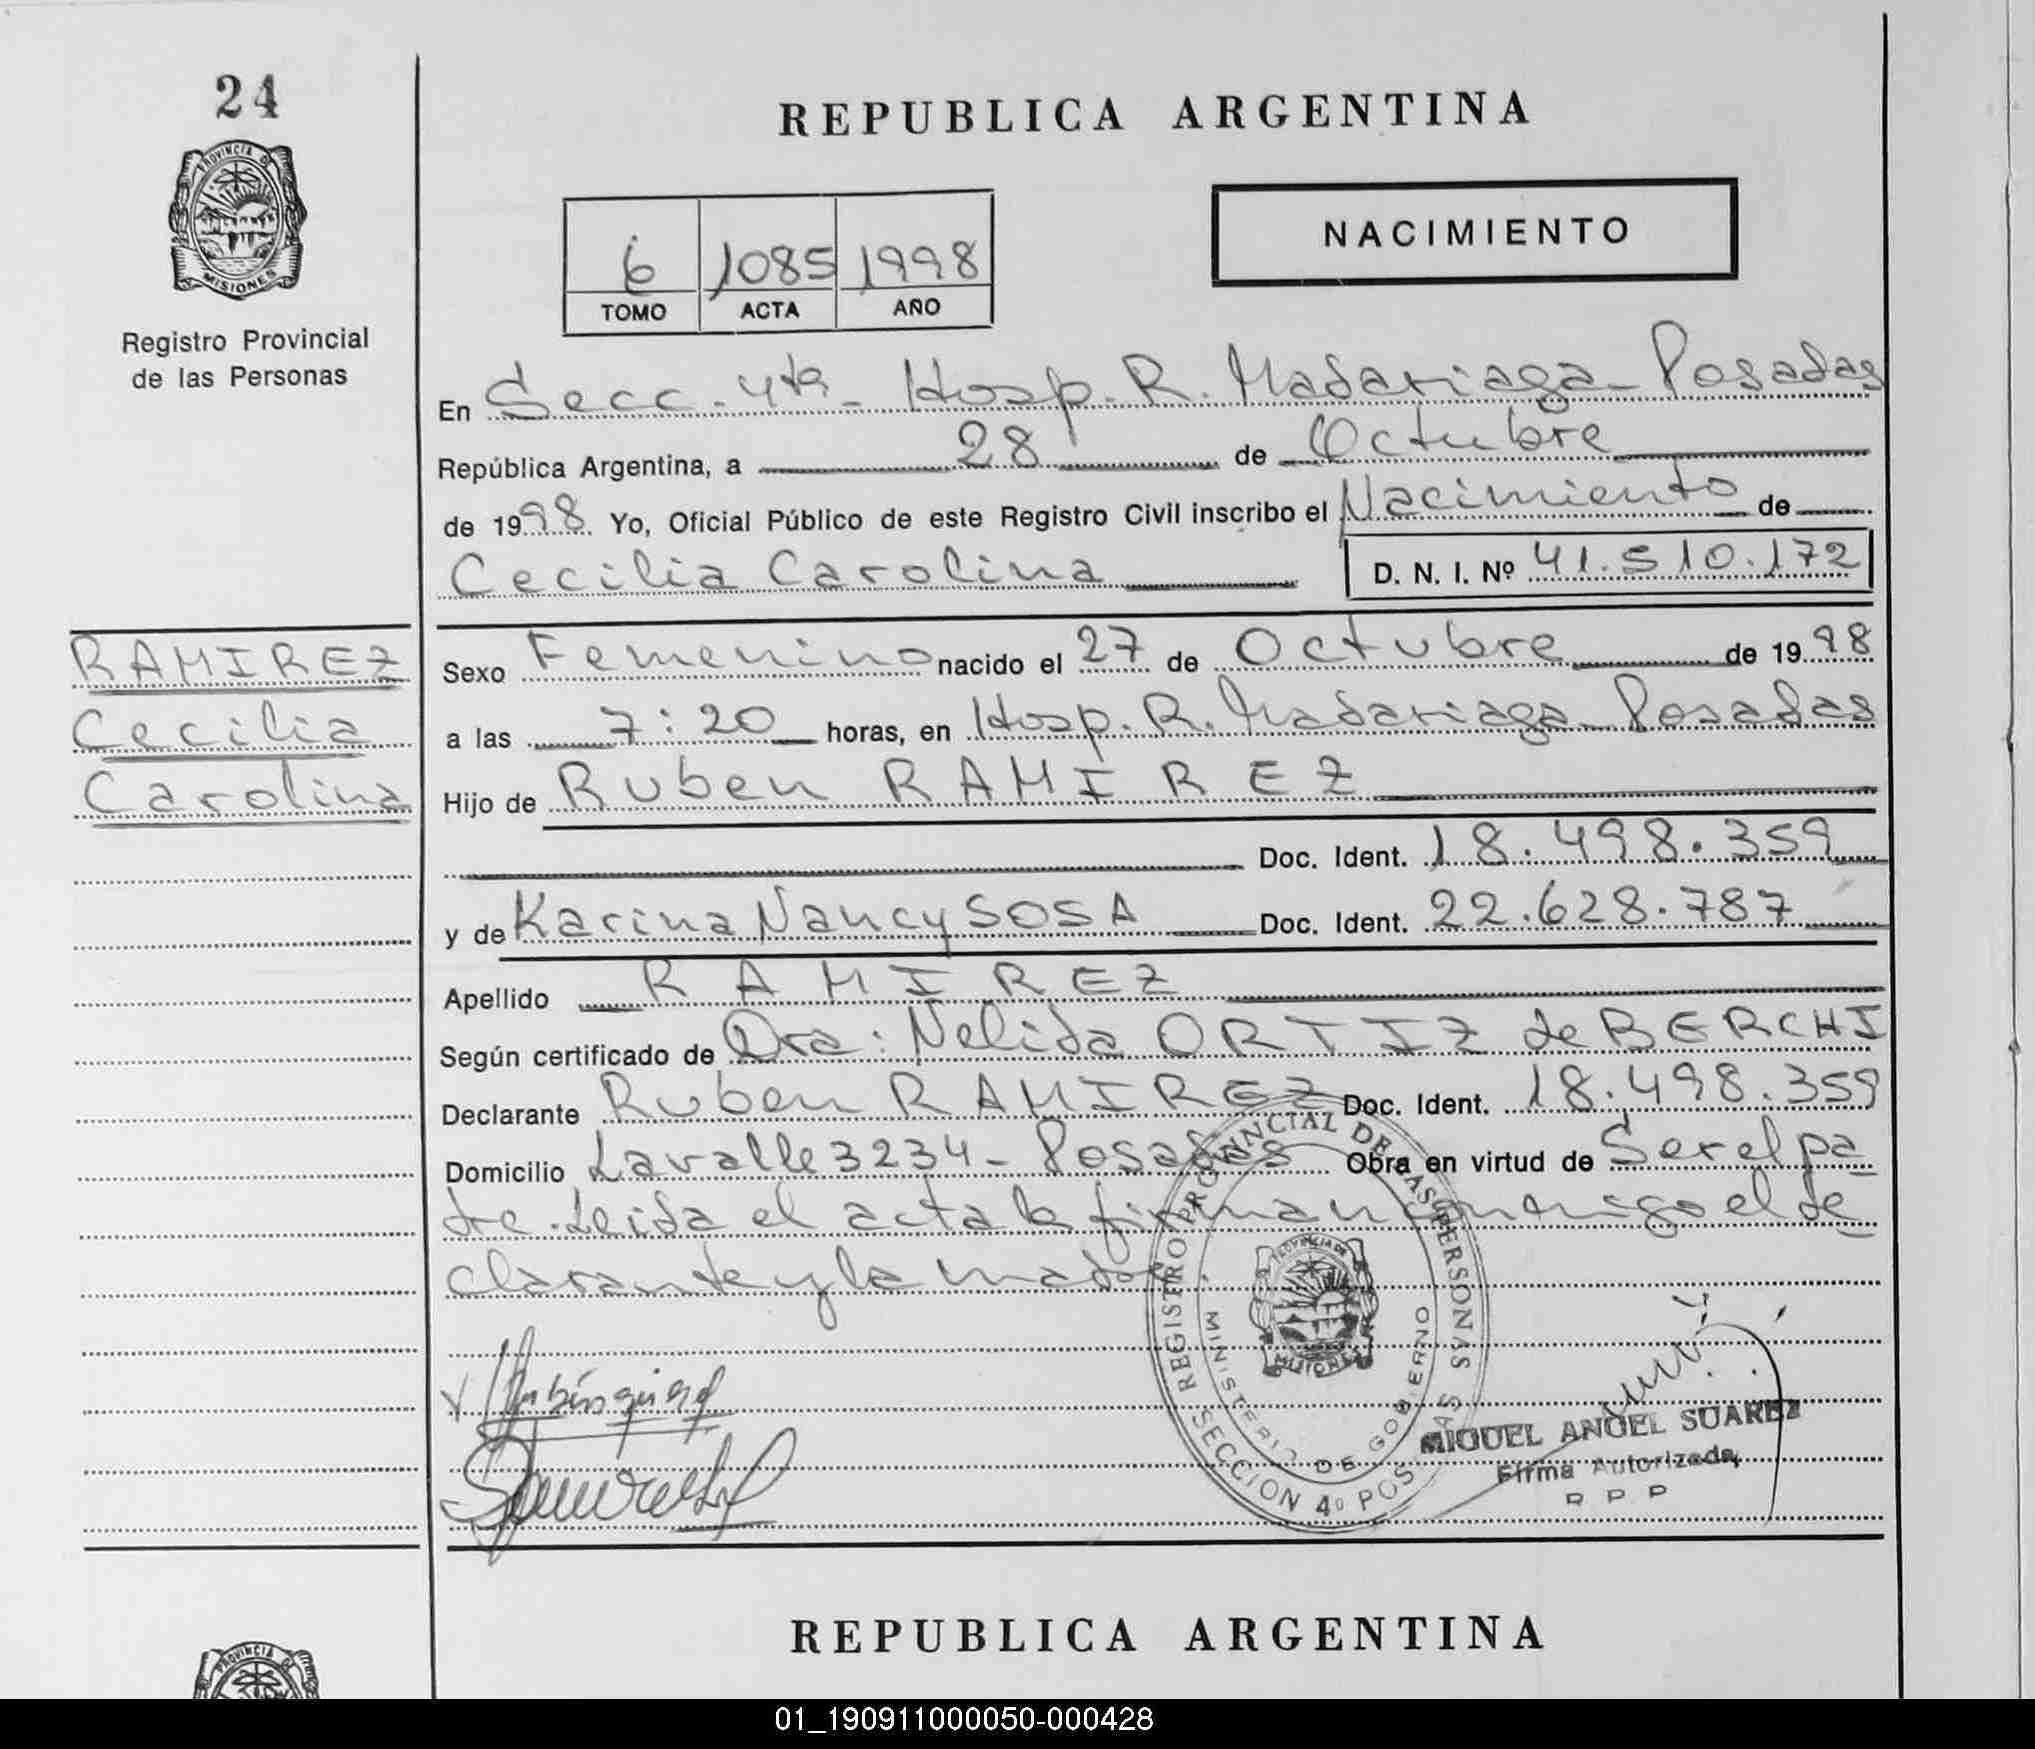 24
REPUBLICA ARGENTINA
PROVINCIA DE
MISIONES
Registro Provincial
de las Personas
NACIMIENTO
6 1085 1998
TOMO ACTA AÑO
En Secc. 4ta - Hosp. R. Madariaga - Posadas
República Argentina, a 28 de Octubre
de 1998. Yo, Oficial Público de este Registro Civil inscribo el Nacimiento de
Cecilia Carolina D. N. I. Nº 41.510.172
RAMIREZ
Cecilia
Carolina
Sexo Femenino nacido el 27 de Octubre de 1998
a las 7:20 horas, en Hosp. R. Madariaga - Posadas
Hijo de Ruben RAMIREZ
Doc. Ident. 18.498.359
y de Karina Nancy SOSA Doc. Ident. 22.628.787
Apellido RAMIREZ
Según certificado de Dra: Nelida ORTIZ de BERCHI
Declarante Ruben RAMIREZ Doc. Ident. 18.498.359
Domicilio Lavalle 3234 - Posadas Obra en virtud de Ser el pa
dre. Leida el acta la firman conmigo el de
clarante y la madre
REGISTRO PROVINCIAL DE LAS PERSONAS
MINISTERIO DE GOBIERNO
SECCION 4º POSADAS
PROVINCIA DE
MISIONES
MIGUEL ANGEL SUAREZ
Firma Autorizada
R P P
REPUBLICA ARGENTINA
PROVINCIA DE
01_190911000050-000428